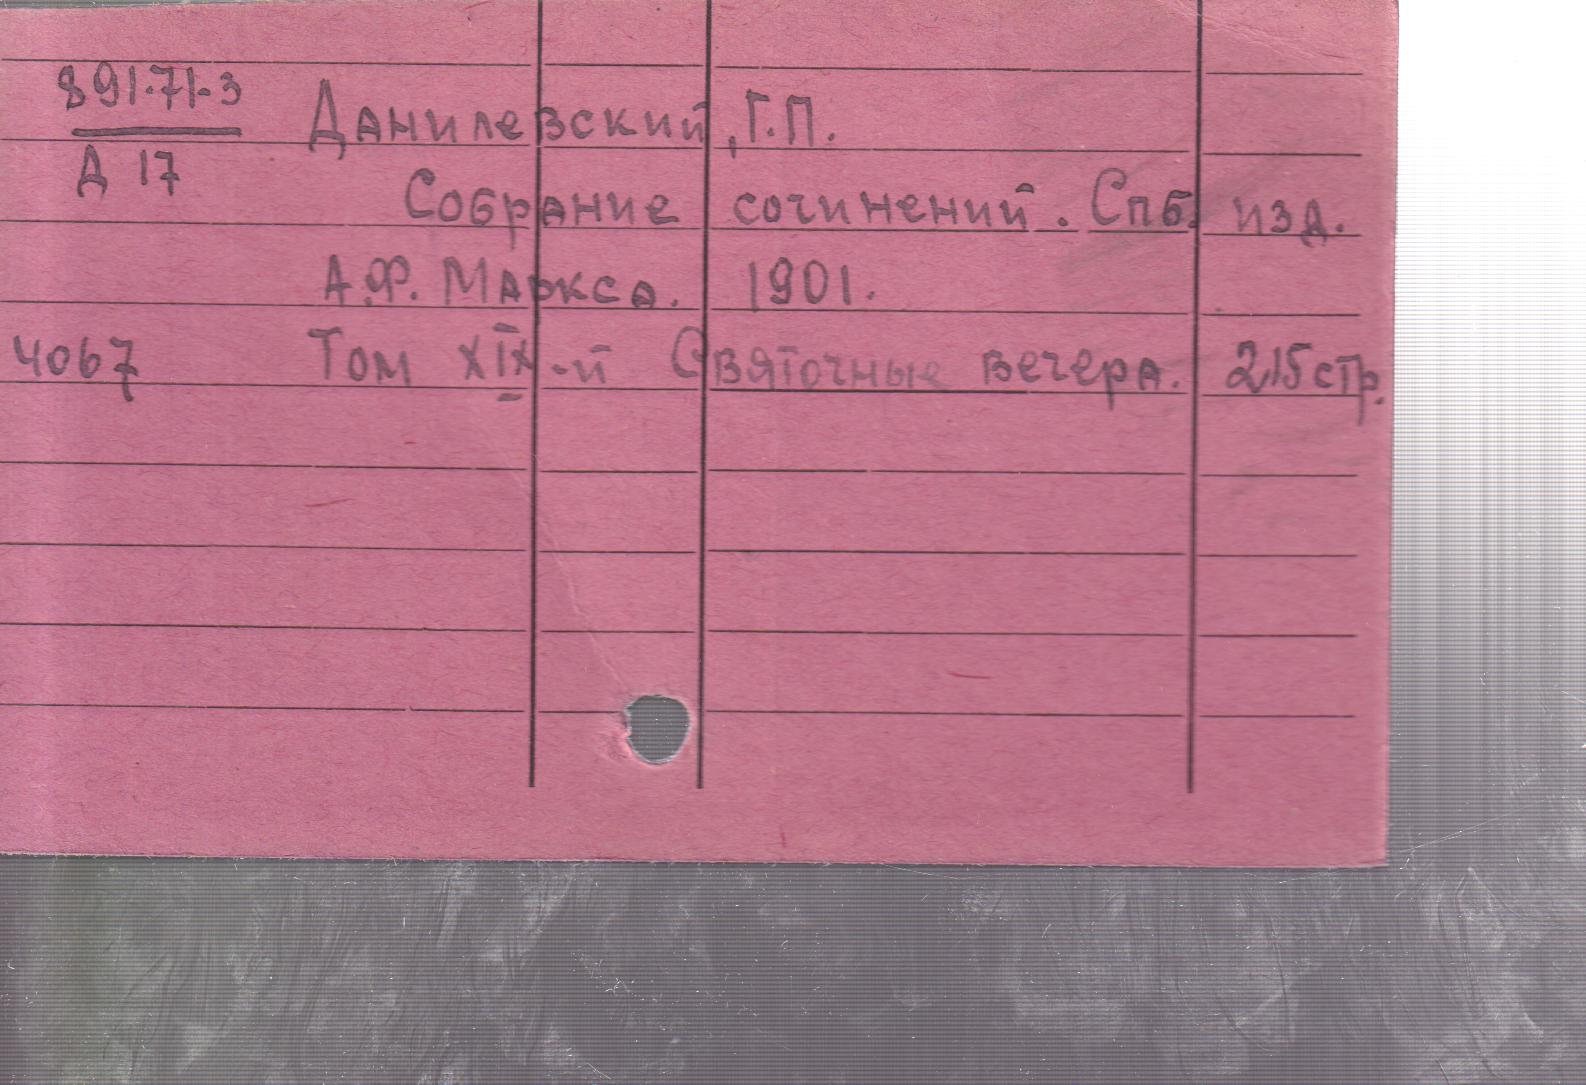 891.71-3 Данилевский, Г.П.
Д 17
Собрание сочинений. Спб. изд.
А.Ф. Маркса. 1901.
4067 Том XIX-й Святочные вечера. 215 стр.